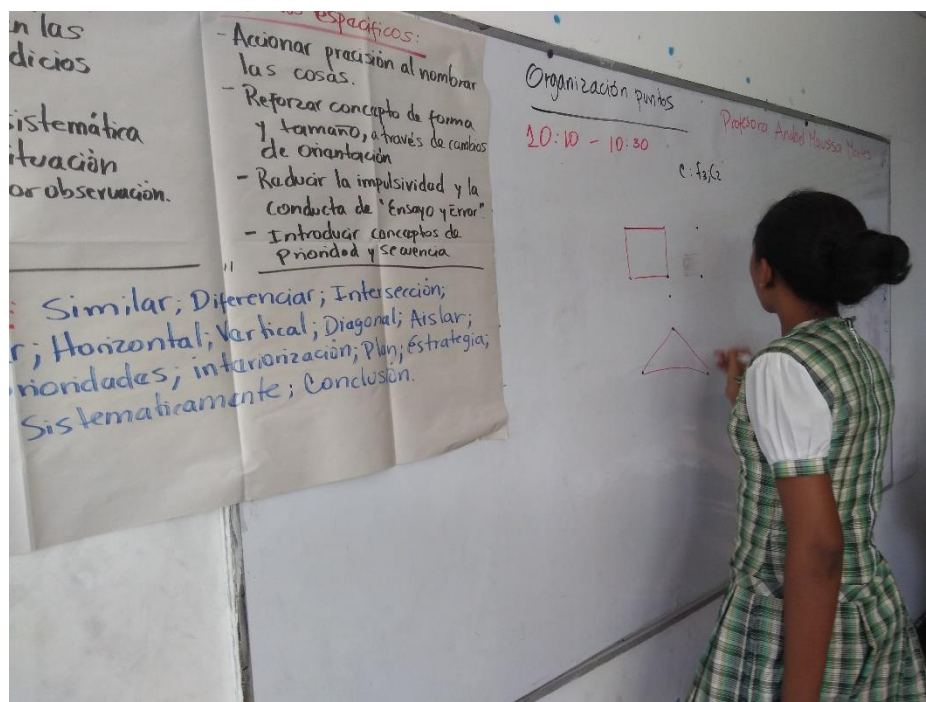 n las
dicios
sistemática
ituación
or observación.
específicos:
- Accionar pracisión al nombrar
las cosas.
- Reforzar concapto de forma
y tamaño, a través de cambios
de oriantación
- Raducir la impulsividad y la
conducta de "Ensayo y Error"
- Introducir concaptos de
Prioridad y secuencia
Similar; Difarenciar; Intersección;
r; Horizontal; Vartical; Diagonal; Aislar;
rioridadas; intariorización; Plan; Estrategia;
Sistematicamante; Conclusión.
Organización puntos
10:10 - 10:30
Profesora